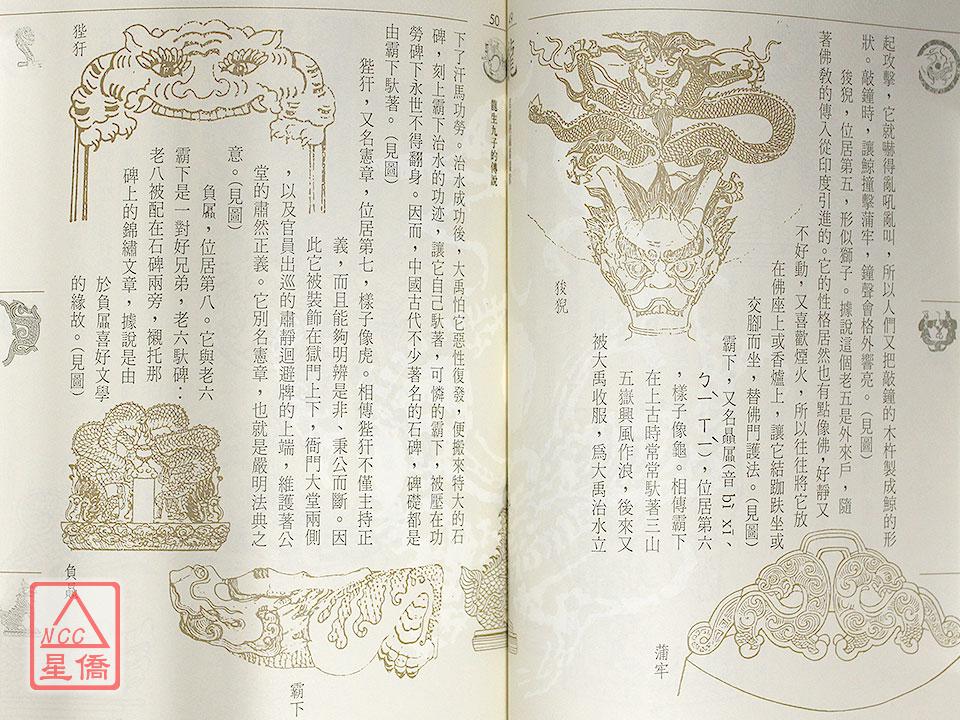 起攻擊，它就嚇得亂吼亂叫，所以人們又把敲鐘的木杵製成鯨的形
狀。敲鐘時，讓鯨撞擊蒲牢，鐘聲會格外響亮。（見圖）
狻猊，位居第五，形似獅子。據說這個老五是外來戶，隨
著佛教的傳入從印度引進的。它的性格居然也有點像佛，好靜又
不好動，又喜歡煙火，所以往往將它放
在佛座上或香爐上，讓它結跏趺坐或
交腳而坐，替佛門護法。（見圖）
霸下，又名贔屭（音 bì xī、
ㄅㄧˋ ㄒㄧˋ），位居第六
，樣子像龜。相傳霸下
在上古時常常馱著三山
五嶽興風作浪，後來又
被大禹收服，為大禹治水立
狻猊
蒲牢
50
龍生九子的傳說
下了汗馬功勞。治水成功後，大禹怕它惡性復發，便搬來特大的石
碑，刻上霸下治水的功迹，讓它自己馱著，可憐的霸下，被壓在功
勞碑下永世不得翻身。因而，中國古代不少著名的石碑，碑礎都是
由霸下馱著。（見圖）
狴犴，又名憲章，位居第七，樣子像虎。相傳狴犴不僅主持正
義，而且能夠明辨是非、秉公而斷。因
此它被裝飾在獄門上下，衙門大堂兩側
，以及官員出巡的肅靜迴避牌的上端，維護著公
堂的肅然正義。它別名憲章，也就是嚴明法典之
意。（見圖）
負屭，位居第八。它與老六
霸下是一對好兄弟，老六馱碑；
老八被配在石碑兩旁，襯托那
碑上的錦繡文章，據說是由
於負屭喜好文學
的緣故。（見圖）
狴犴
負屭
霸下
NCC
星僑